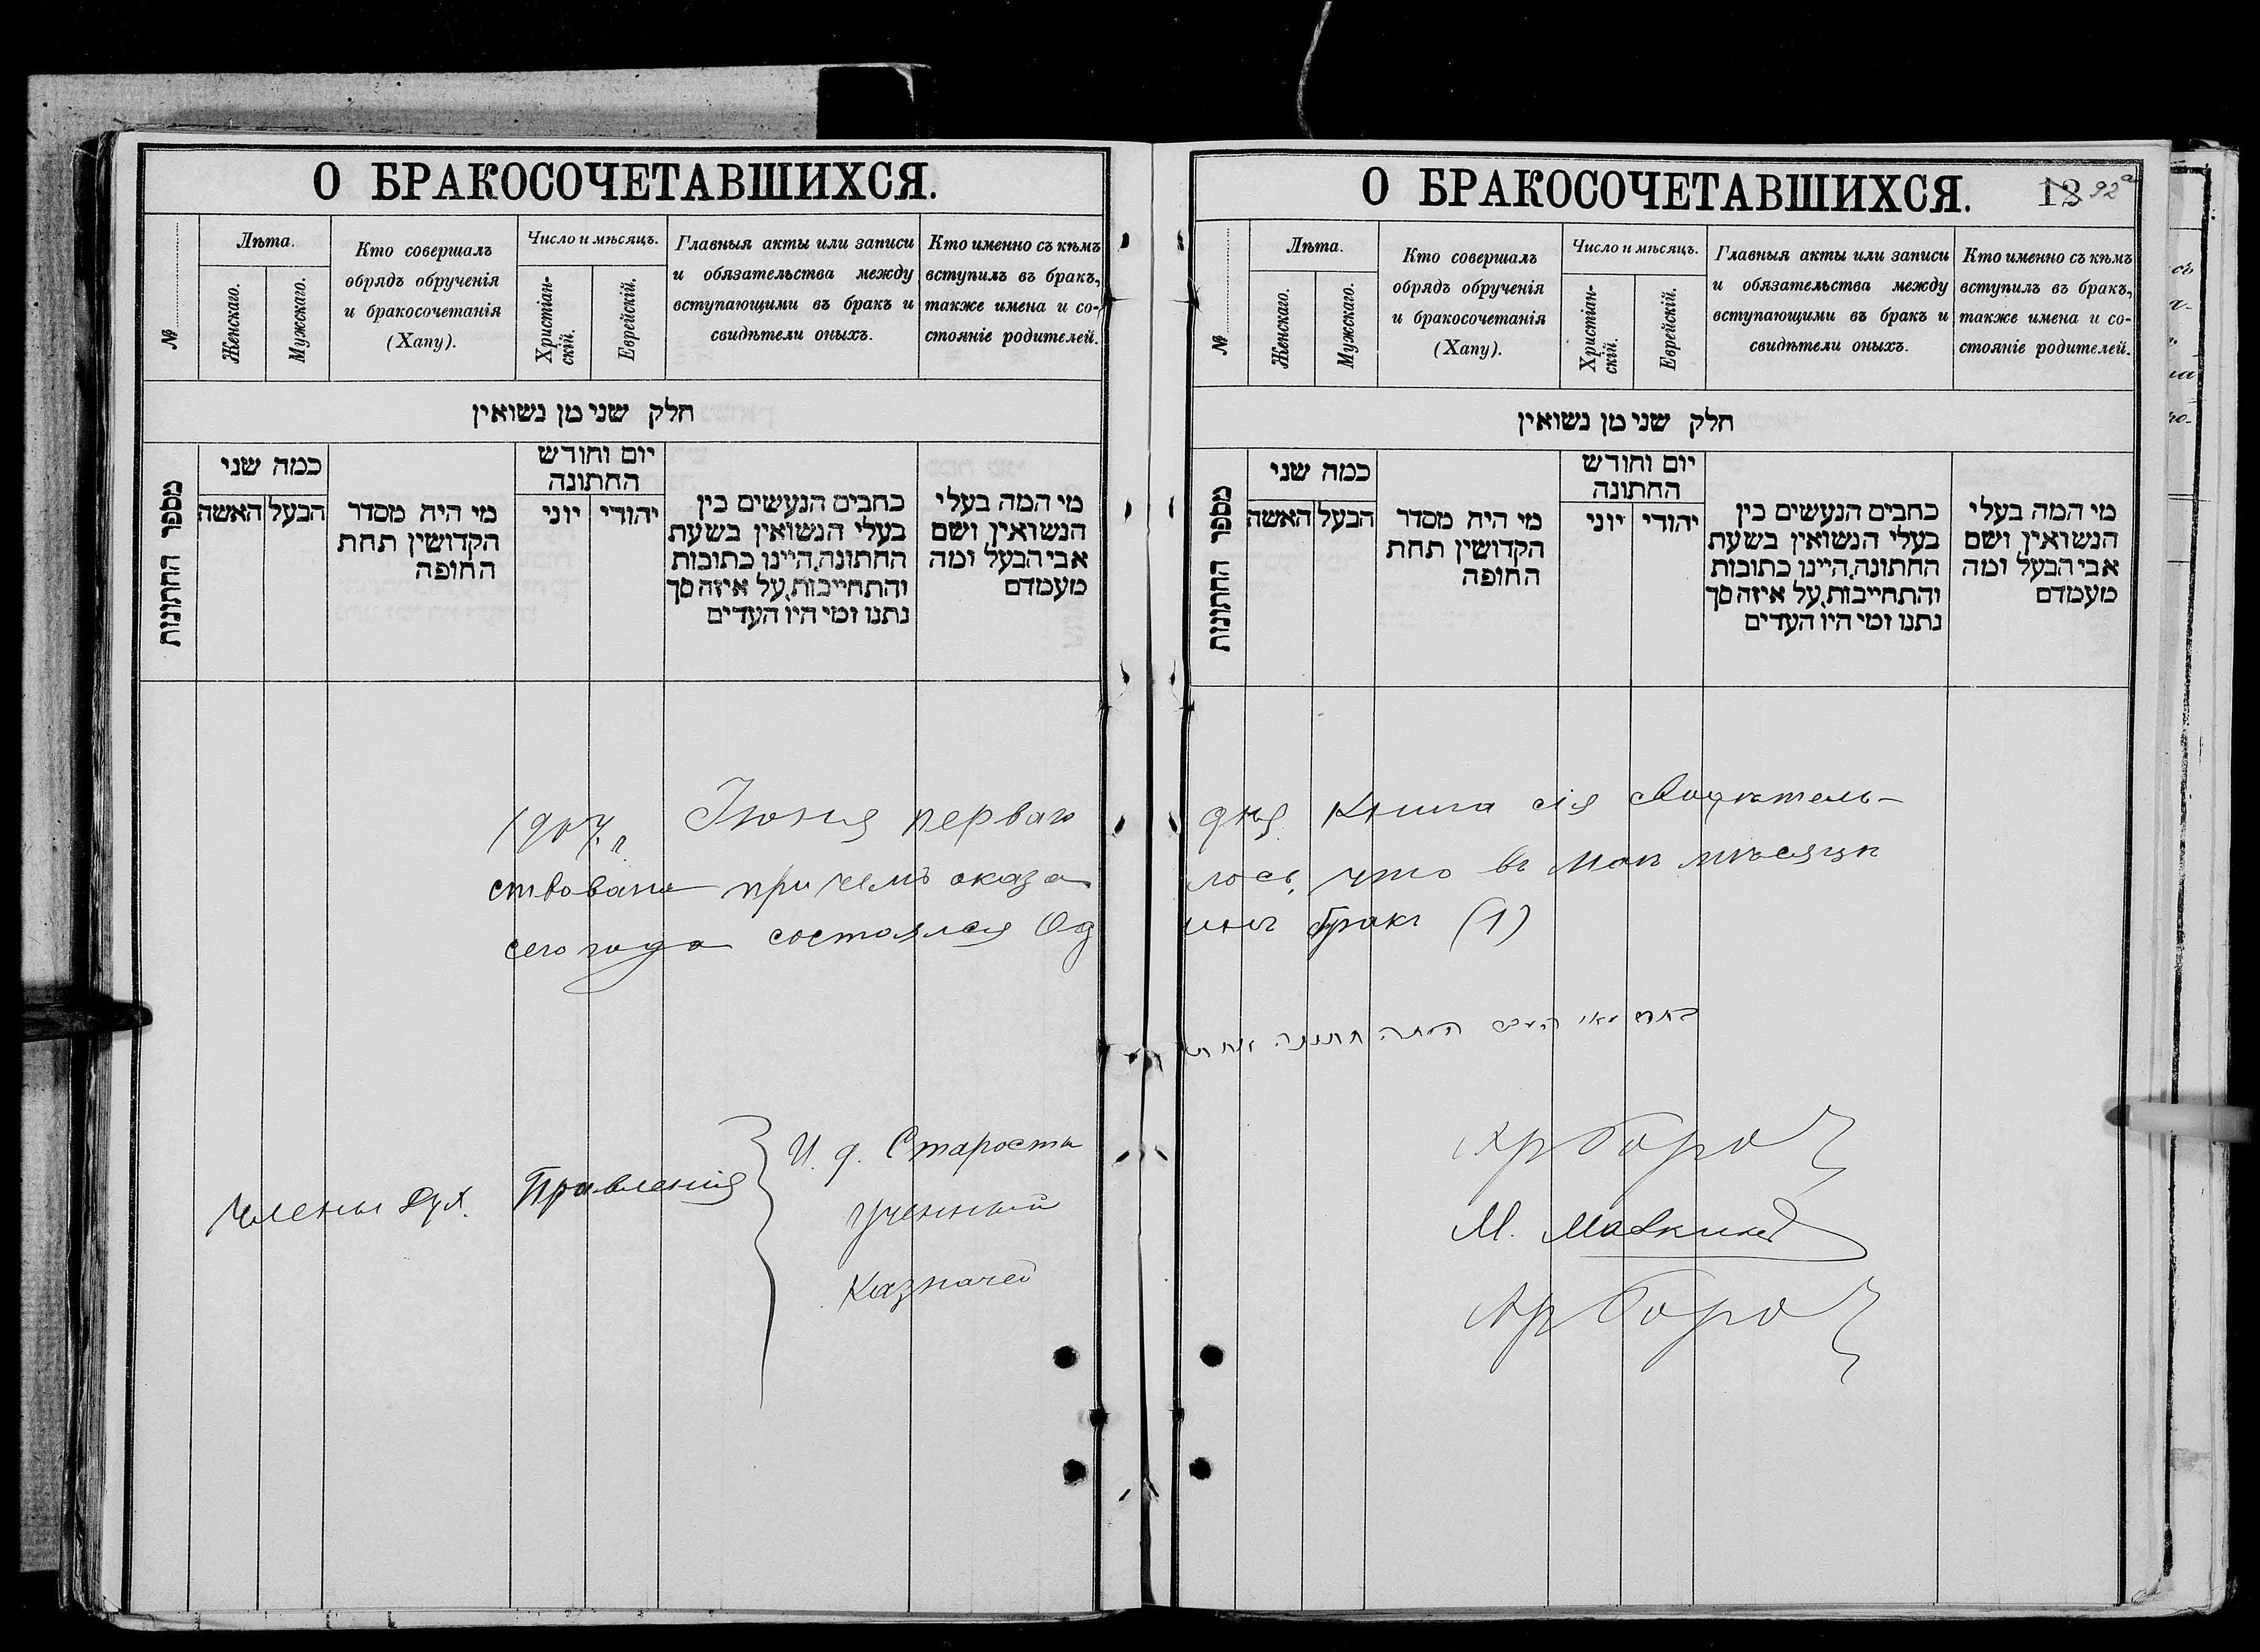 О БРАКОСОЧЕТАВШИХСЯ.
№
Лѣта.
Женскаго.
Мужскаго.
Кто совершалъ
обрядъ обрученія
и бракосочетанія
(Хапу).
Число и мѣсяцъ.
Христіан-
скій.
Еврейскій.
Главныя акты или записи
и обязательства между
вступающими въ бракъ и
свидѣтели оныхъ.
Кто именно съ кѣмъ
вступилъ въ бракъ,
также имена и со-
стояніе родителей.
חלק שני מן נשואין
מספר החתונות
כמה שני
הבעל האשה
מי היה מסדר
הקדושין תחת
החופה
יום וחודש
החתונה
יהודי יוני
כתבים הנעשים בין
בעלי הנשואין בשעת
החתונה, היינו כתובות
והתחייבות, על איזה סך
נתנו ומי היו העדים
מי המה בעלי
הנשואין ושם
אבי הבעל ומה
מעמדם
О БРАКОСОЧЕТАВШИХСЯ.
12 92а
№
Лѣта.
Женскаго.
Мужскаго.
Кто совершалъ
обрядъ обрученія
и бракосочетанія
(Хапу).
Число и мѣсяцъ.
Христіан-
скій.
Еврейскій.
Главныя акты или записи
и обязательства между
вступающими въ бракъ и
свидѣтели оныхъ.
Кто именно съ кѣмъ
вступилъ въ бракъ,
также имена и со-
стояніе родителей.
חלק שני מן נשואין
מספר החתונות
כמה שני
הבעל האשה
מי היה מסדר
הקדושין תחת
החופה
יום וחודש
החתונה
יהודי יוני
כתבים הנעשים בין
בעלי הנשואין בשעת
החתונה, היינו כתובות
והתחייבות, על איזה סך
נתנו ומי היו העדים
מי המה בעלי
הנשואין ושם
אבי הבעל ומה
מעמדם
1907 г. Іюня перваго дня Книга сія свидѣтель-
ствована при чемъ оказалось, что въ Маѣ мѣсяцѣ
сего года состоялся Одинъ бракъ (1)
היתה חתונה אחת
Члены Дух. Правленія
И. д. Старосты
Ученный М.
Казначей